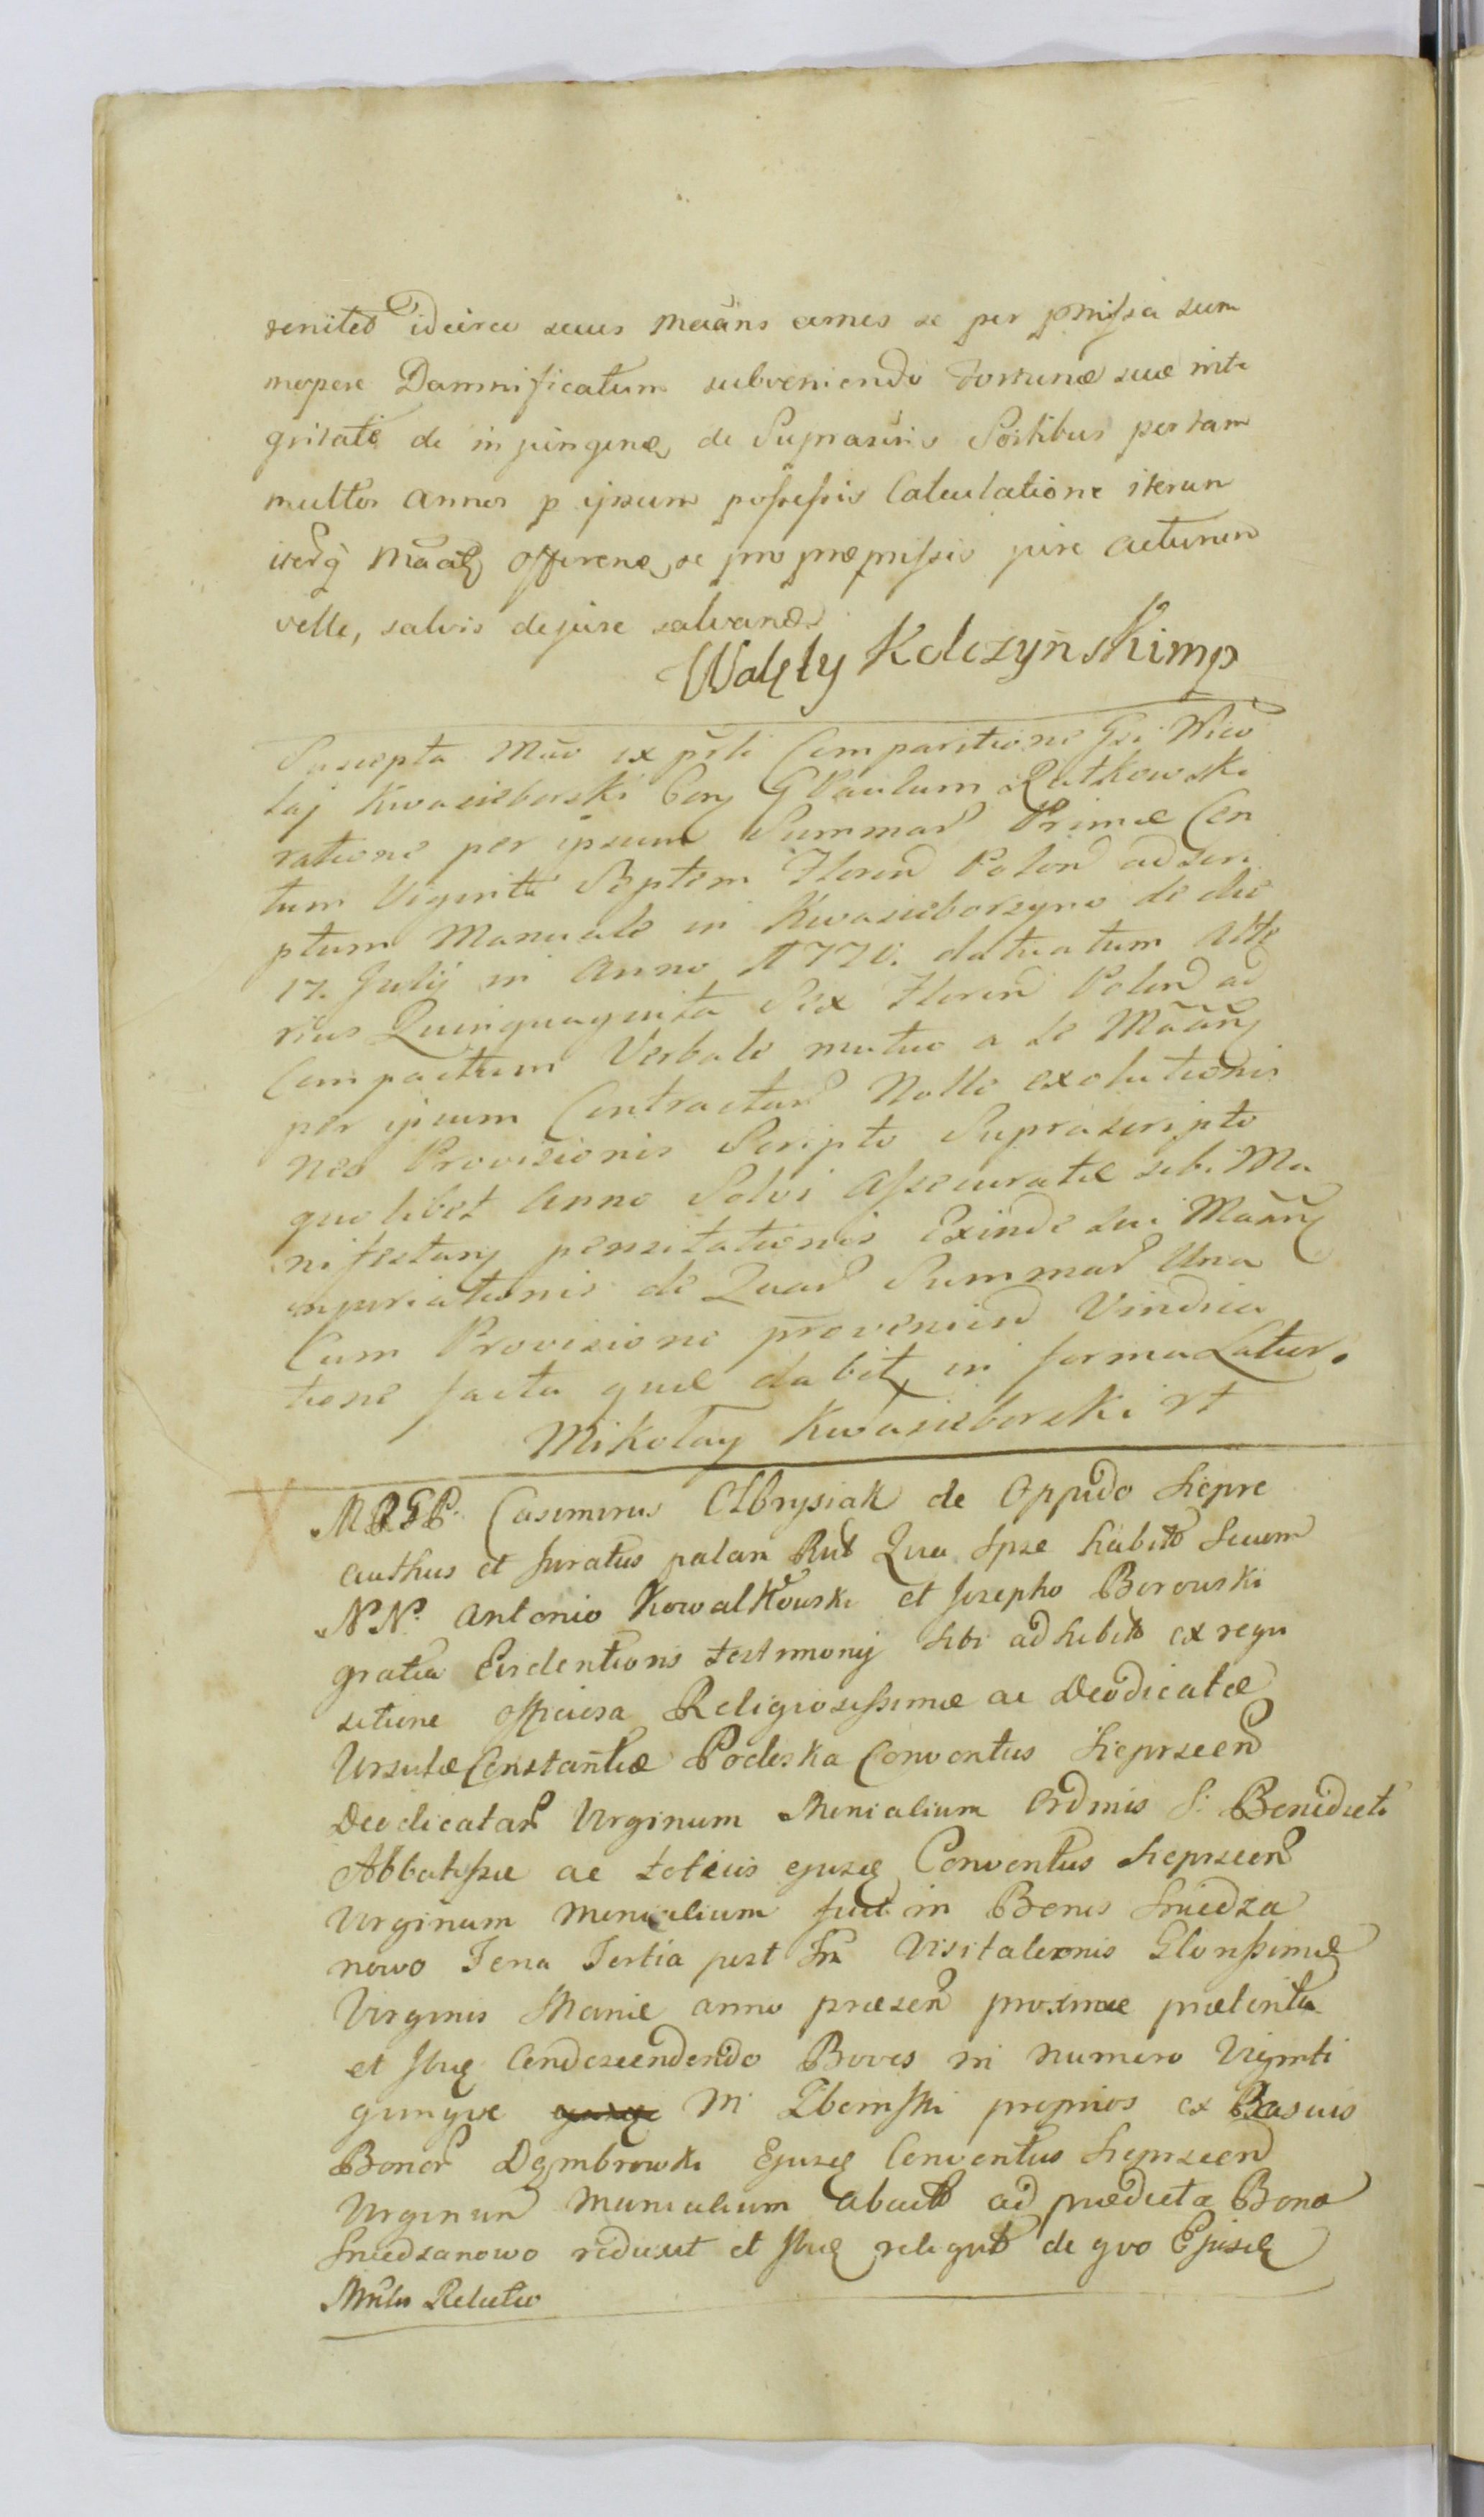 idcirco secus Maans omnes se per pmissa sum
mopere Damnificatum subveniendo fortunæ suæ inte
gritati de injungenđ de Suprascris Sortibus per tam
multos annos p ipsum possessis Calculatione iterum
iterq offerenđ se pro præmissis jure acturum
velle, salvis de jure salvanđ.
Walęty Kolczyński mp
Suscepta Mao ex prti Comparitione Gsi Mico
łaj Kwasieborski Con G Paulum Rutkowski
ratione per ipsum Summar Primæ Cen
tum Viginti Septem Floren Polon ad Scri
ptum Manuale in Kwasieborzyno de die
17. Julij in Anno 1771. datuatum Alte
rius Quinquaginta Sex Floren Polon ad
Compactum Verbale mutuo a se Maañ
per ipsum Contractar Nolle exolutionis
nes Provisionis Scripto Suprascripto
quolibet Anno Solvi Assecuratæ sibi Ma
nifestanŋ pensitationis Exinde sui Maañ
injuriationis de Quar Summar Una
Cum Provisione provenien Vindica
tione facta quæ dabit in forma Latior.
Mikołay Kwasieborski rt
Casimirus Olbrysiak de Oppido Siepre
authus et Juratus palam Rut Qua Ipse habito Secum
NN. Antonio Kowalkowski et Josepho Borowski
gratia Evidentioris testimonij Sibi adhibito ex requi
sitione officiosa Religiosissimæ ac Deodicatæ
Ursulæ Constantiæ Podoska Conventus Sieprscen
Deodicatar Virginum Monialium Ordinis S. Benedicti
Abbatissæ ac totius ejusq Conventus Sieprscen
Virginum Monialium fuit in Bonis Sniedza
nowo Feria Tertia post Visitationis Glorissimæ
Virginis Mariæ anno præsen proxime præterita
et Ibiq Condescendendo Boves in numero Viginti
quinque M proprios ex
Bonor Dąmbrowski Ejusq Conventus Sieprscen
Virginum Monialium abacto ad prædicta Bona
Sniedzanowo reduxit et Ibiq reliquit de quo Ejusq
Relatio